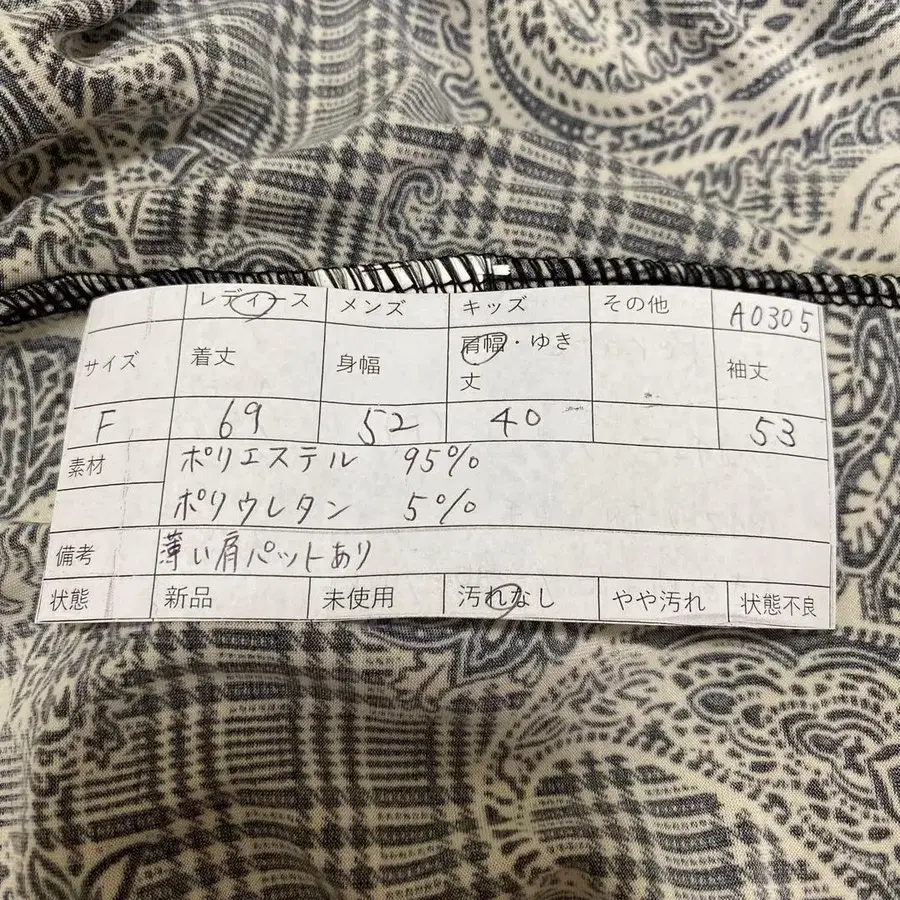 レディース メンズ キッズ その他 A0305
サイズ 着丈 身幅 肩幅・ゆき丈 袖丈
F 69 52 40 53
素材 ポリエステル 95%
ポリウレタン 5%
備考 薄い肩パットあり
状態 新品 未使用 汚れなし やや汚れ 状態不良